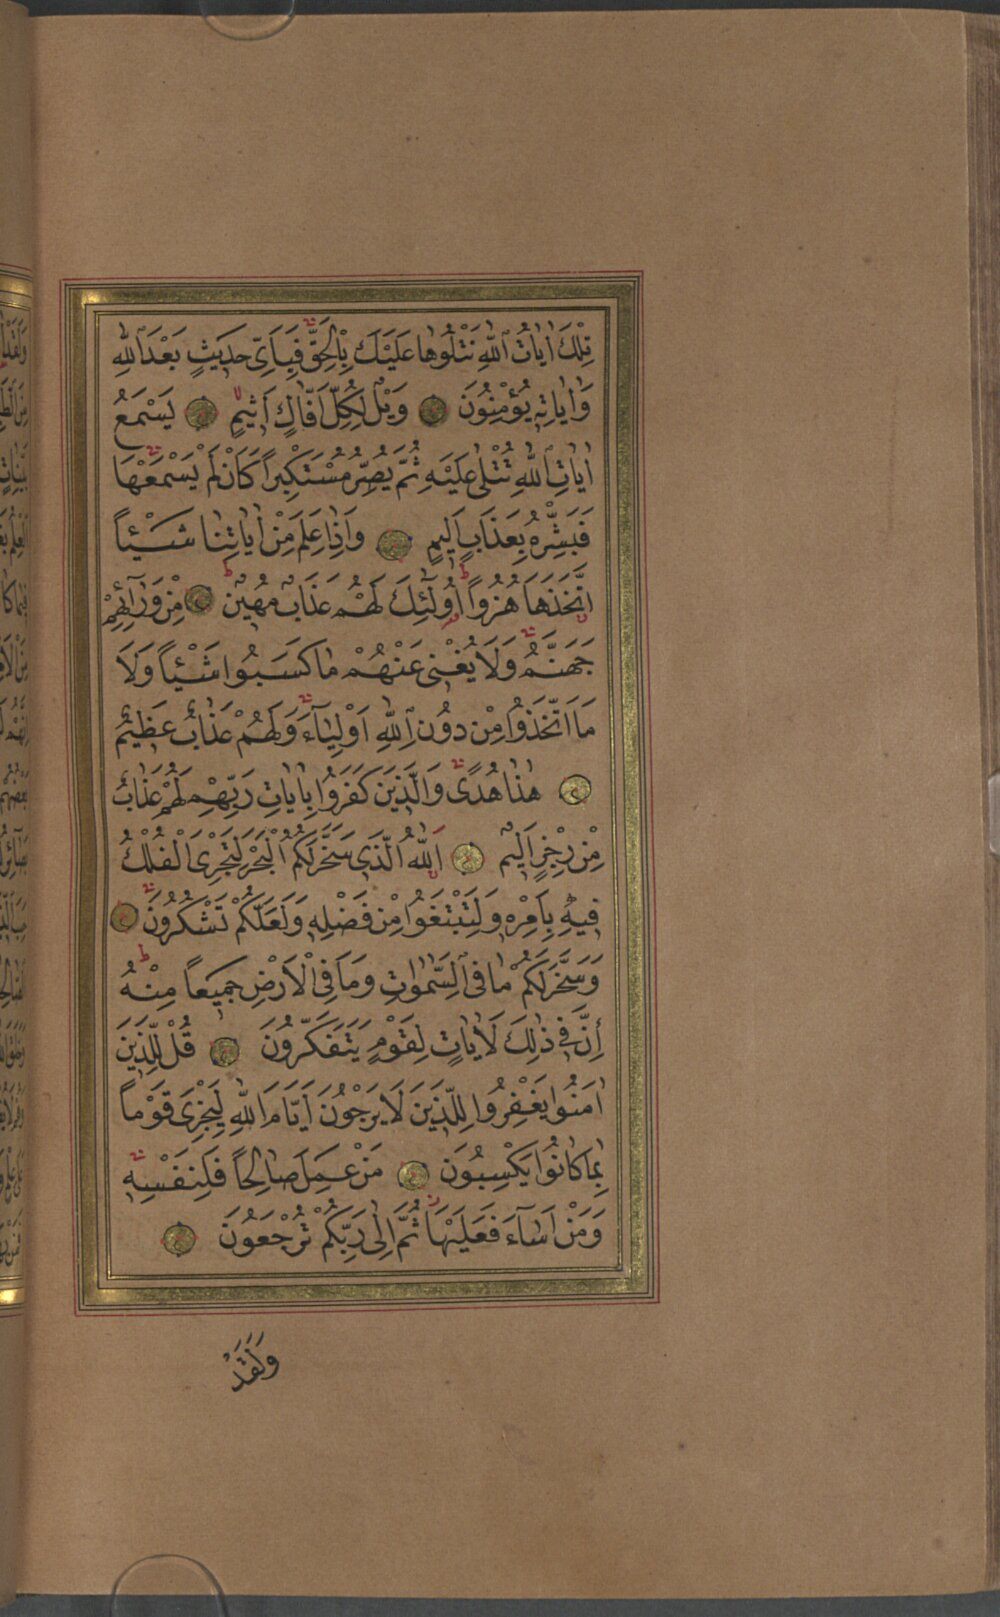 تِلْكَ اٰيَاتُ اللّٰهِ نَتْلُوهَا عَلَيْكَ بِالْحَقِّ فَبِاَىِّ حَدِيثٍ بَعْدَ اللّٰهِ
وَاٰيَاتِهِ يُؤْمِنُونَ وَيْلٌ لِكُلِّ اَفَّاكٍ اَثِيمٍ يَسْمَعُ
اٰيَاتِ اللّٰهِ تُتْلٰى عَلَيْهِ ثُمَّ يُصِرُّ مُسْتَكْبِراً كَاَنْ لَمْ يَسْمَعْهَا
فَبَشِّرْهُ بِعَذَابٍ اَلِيمٍ وَاِذَا عَلِمَ مِنْ اٰيَاتِنَا شَيْئاً
اتَّخَذَهَا هُزُواً اُولٰٓئِكَ لَهُمْ عَذَابٌ مُهِينٌ مِنْ وَرَآئِهِمْ
جَهَنَّمُ وَلَا يُغْنِى عَنْهُمْ مَا كَسَبُوا شَيْئاً وَلَا
مَا اتَّخَذُوا مِنْ دُونِ اللّٰهِ اَوْلِيَآءَ وَلَهُمْ عَذَابٌ عَظِيمٌ
هٰذَا هُدًى وَالَّذِينَ كَفَرُوا بِاٰيَاتِ رَبِّهِمْ لَهُمْ عَذَابٌ
مِنْ رِجْزٍ اَلِيمٌ اَللّٰهُ الَّذِى سَخَّرَ لَكُمُ الْبَحْرَ لِتَجْرِىَ الْفُلْكُ
فِيهِ بِاَمْرِهِ وَلِتَبْتَغُوا مِنْ فَضْلِهِ وَلَعَلَّكُمْ تَشْكُرُونَ
وَسَخَّرَ لَكُمْ مَا فِى السَّمٰوَاتِ وَمَا فِى الْاَرْضِ جَمِيعاً مِنْهُ
اِنَّ فِى ذٰلِكَ لَاٰيَاتٍ لِقَوْمٍ يَتَفَكَّرُونَ قُلْ لِلَّذِينَ
اٰمَنُوا يَغْفِرُوا لِلَّذِينَ لَا يَرْجُونَ اَيَّامَ اللّٰهِ لِيَجْزِىَ قَوْماً
بِمَا كَانُوا يَكْسِبُونَ مَنْ عَمِلَ صَالِحاً فَلِنَفْسِهِ
وَمَنْ اَسَآءَ فَعَلَيْهَا ثُمَّ اِلٰى رَبِّكُمْ تُرْجَعُونَ
وَلَقَدْ